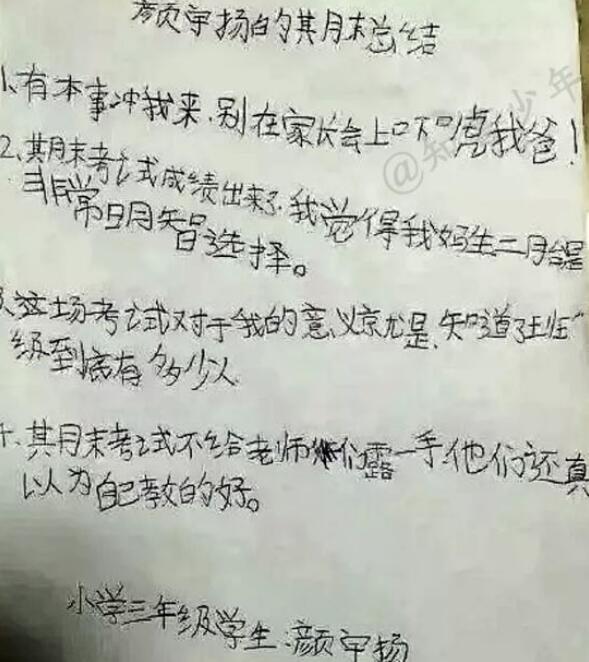 颜宇扬的期末总结
1、有本事冲我来,别在家长会上吓唬我爸!
2、期末考试成绩出来了,我觉得我妈生二胎是
非常明智选择。
3、这场考试对于我的意义就是,知道了班
级到底有多少人
十、期末考试不给老师们露一手,他们还真
以为自己教的好。
小学三年级学生:颜宇扬